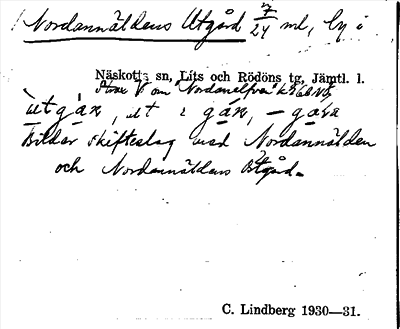 Nordannäldens Utgård 7/24 ml, by i
Näskotts sn, Lits och Rödöns tg, Jämtl. l.
Strax V om
ùtgán, ut i gán, – gava
Bildar skifteslag med Nordannälden
och Nordannäldens Östgård.
C. Lindberg 1930—31.